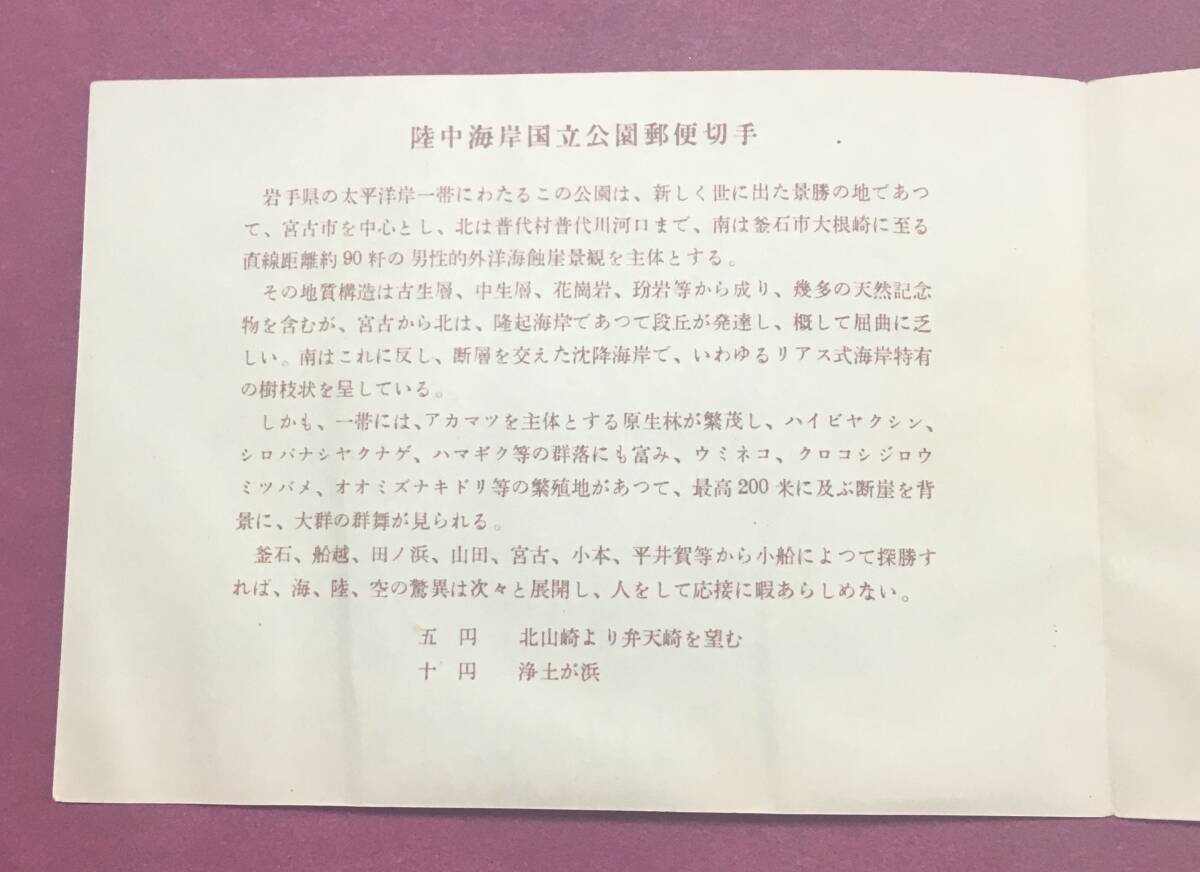 陸中海岸国立公園郵便切手
岩手県の太平洋岸一帯にわたるこの公園は、新しく世に出た景勝の地であつ
て、宮古市を中心とし、北は普代村普代川河口まで、南は釜石市大根崎に至る
直線距離約90粁の男性的外洋海蝕崖景観を主体とする。
その地質構造は古生層、中生層、花崗岩、玢岩等から成り、幾多の天然記念
物を含むが、宮古から北は、隆起海岸であつて段丘が発達し、概して屈曲に乏
しい。南はこれに反し、断層を交えた沈降海岸で、いわゆるリアス式海岸特有
の樹枝状を呈している。
しかも、一帯には、アカマツを主体とする原生林が繁茂し、ハイビヤクシン、
シロバナシヤクナゲ、ハマギク等の群落にも富み、ウミネコ、クロコシジロウ
ミツバメ、オオミズナキドリ等の繁殖地があつて、最高200米に及ぶ断崖を背
景に、大群の群舞が見られる。
釜石、船越、田ノ浜、山田、宮古、小本、平井賀等から小船によつて探勝す
れば、海、陸、空の驚異は次々と展開し、人をして応接に暇あらしめない。
五円 北山崎より弁天崎を望む
十円 浄土が浜